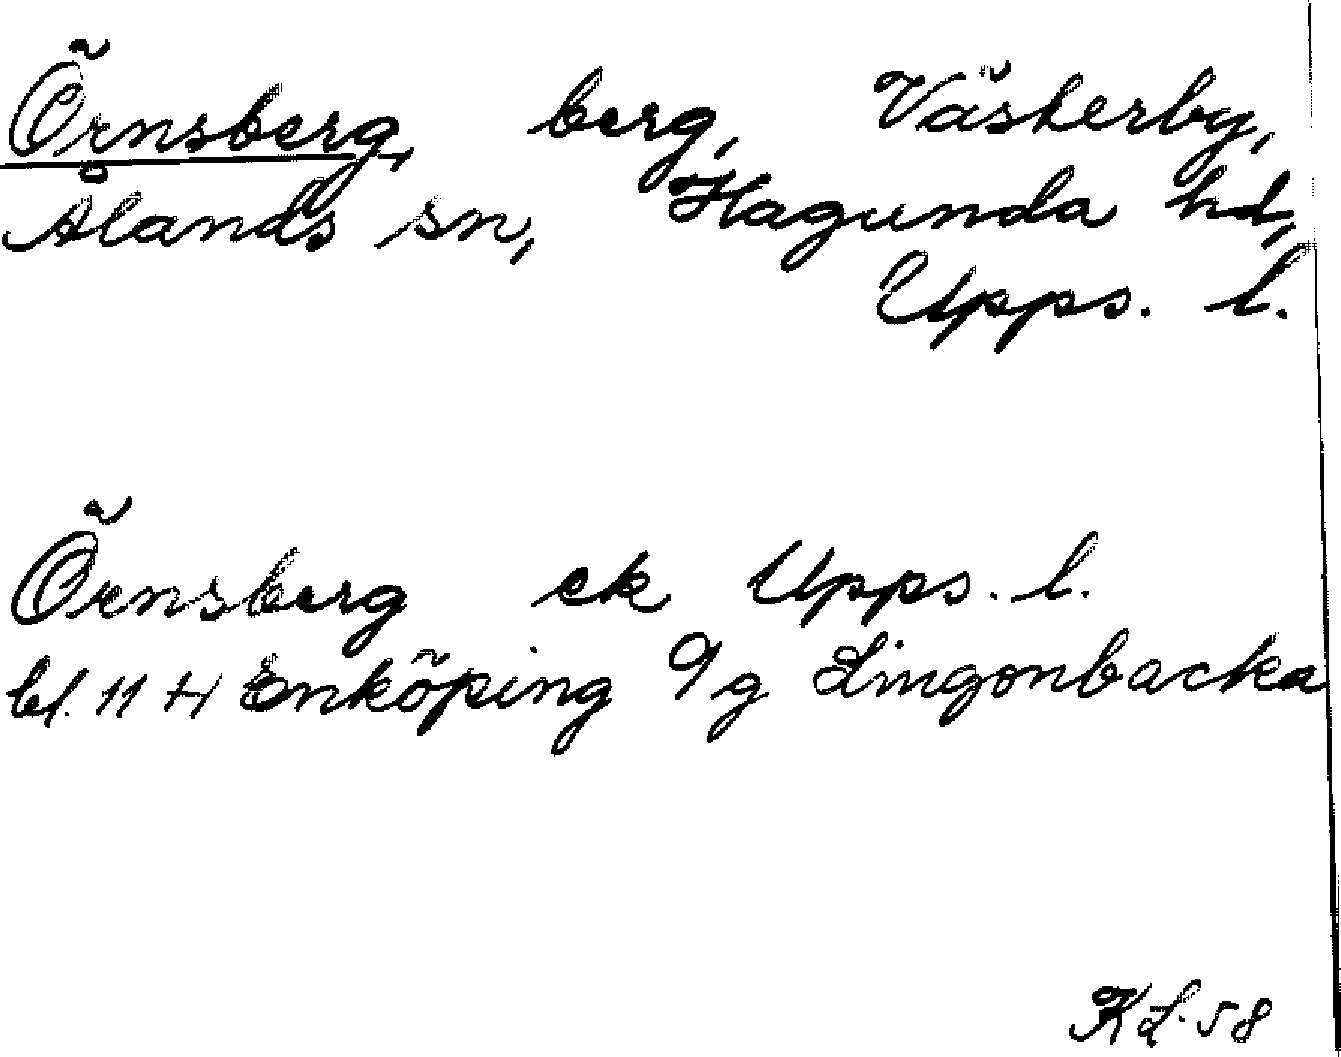 Örnsberg, berg, Västerby,
Ålands sn, Hagunda hd,
Upps. l.
Örnsberg ek Upps. l.
bl. 11 H Enköping 9 g Lingonbacka
KL. 58